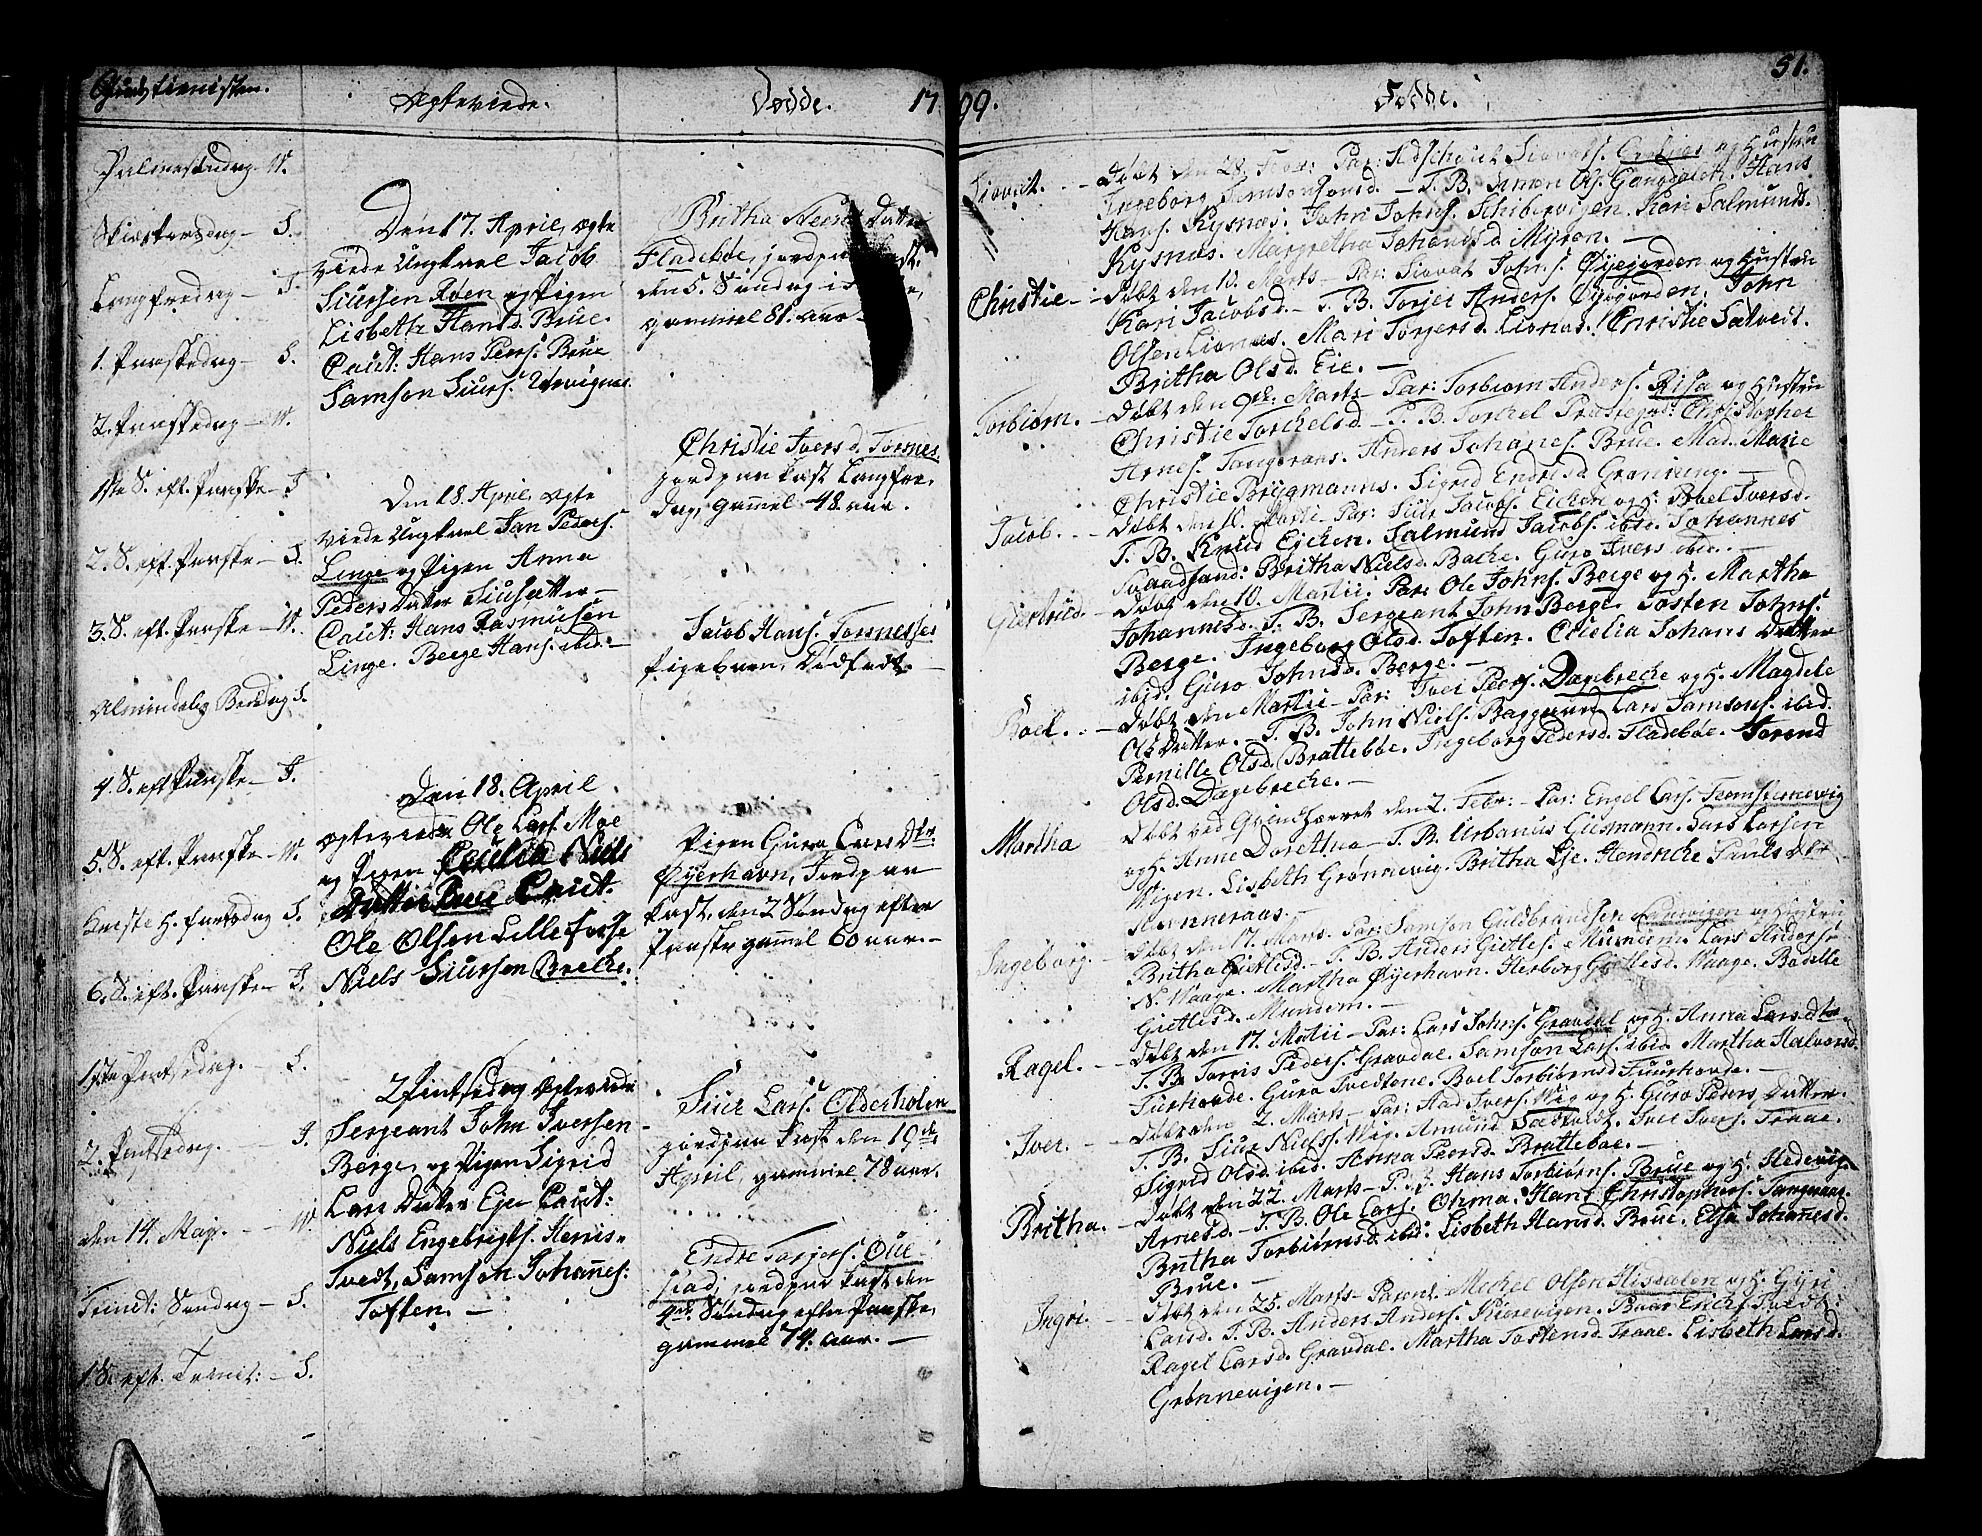 Gudstienisten.
Palmesøndag. W.
Skiærtorsdag — S.
Langfredag — J.
1. Paaskedag — S.
2. Paaskedag — W.
1ste S. eft. Paaske — J.
2. S. eft. Paaske — S.
3. S. eft. Paaske — W.
Almindelig Bededag S.
4. S. eft Paaske — J.
5. S. eft. Paaske — W.
Christi H. fartsdag S.
6. S. eft. Paaske — J.
1ste Pintsedag. — S.
2. Pintsedag. — J.
den 14. Maji. — W.
Trinit: Søndag — S.
1. S. eft. Trinit: — S.
Ægteviede.
Den 17. April, ægte
viede Ungkarl Jacob
Siursen Røen og Pigen
Lisbeth Hansd. Brue.
Caut: Hans Peers. Brue
Samson Siurs.
Den 18. April, ægte
viede Ungkarl Jan Peders.
Linge og Pigen Anna
Peders Datter Siusætter —
Caut: Hans Rasmusen
Linge. Berge Hans. ibid: —
Den 18. April
ægteviede Ole Lars. Moe
og Pigen Cecilia Niels
Datter Brue Caut.
Ole Olsen Lille Fosse
Niels Siursen Breche.
2 Pintsedag ægteviede
Sergeant John Iversen
Berge, og Pigen Sigrid
Lars Datter Eje Caut:
Niels Engebrigts. Herris-
Tvedt, Samson Johannes:
Toften. —
Døde. 17
Britha Datter
Fladebøe, jordpaakast.
den 5. Søndag i
gammel 81. aar —
Christie Ivers d. Torsnes
jordpaakast Langfre-
dag, gamel 48 aar.
Jacob Hans. Torsnesses
Pigebarn, Dødfødt. —
Pigen Guro Lars Dtr
Øyerhavn, Jordpaa
kast, den 2 Søndag efter
Paaske gamel 60 aar. —
Siur Lars. Olderholen
jordpaakast den 19de
April, gammel 78 aar.
Endre Torgers. Øue-
stad, jordpaakast den
4de. Søndag efter Paaske,
gammel 74. aar. —
99. Fødde. 51.
Siovat. — Døbt den 28. Febr: Par: Siovats. og Hustru
Ingeborg Samsonsd. — T. B. Simon Ols. Gangdalen. Hans
Hans. Kysnæs. John Johns. Schibervigen. Kari Salmunds.
Kysnæs. Margretha Johansd. Myren. —
Christie — Døbt den 10. Marts — Par: Siovat Johns. Øyegarden og Hustru
Kari Jacobsd. — T. B. Torjer Anders. Øyegarden. John
Olsen Lionæs. Mari Torgersd. Lionæs. Christie Salvedt.
Britha Olsd. Eie. —
Torbiørn. — Døbt den 9de: Marts — Par: Torbiørn Anders. Risa og Hustru
Christie Torchelsd — T. B. Torchel Præstegrd: Christopher
Arnes. Tangeraas. Anders Johanes. Brue. Mad. Marie
Christie Bryggmanns. Sigrid Endresd Gravning. —
Jacob. — Døbt den 10. Martii — Par: Siur Jacobs. Eichen og H. Boel Iversd.
T. B. Knud Eichen. Salmund Jacobs. ibid. Johannes
Britha Nielsd. Bache. Guro Ivers ibid: —
Giertrud. — Døbt den 10. Martii. Par: Ole Johns. Berge og H. Martha
Johannesd. T. B. Sergeant John Berge. Tosten Johns.
Berge. Ingeborg Olsd. Toften. Cecelia Johans Datter
ibid. Guro Johnsd. Berge. —
Boel. — Døbt den Martii — Par: Iver Peers. Døgebreche og H. Magdele
Ols Datter. — T. B. John Niels. Baggerun Lars Samsons. ibid.
Pernille Olsd. Bratteboe. Ingeborg Pedersd. Fladebøe. Torend
Olsd. Døgebreche. —
Martha — Døbt ved Qvindherret den 2. Febr: — Par: Engel Lars. Tromsternevig
og H. Anne Dorethea — T. B. Urbanus Giesmann. Lars Larsen
Wigen. Lisbeth Grønnevig. Britha Eje. Hendriche Pauls Dtr
Ravneraas. —
Ingeborg. — Døbt den 17. Marts. Par: Samson Guldbrandsen og Hustru
Britha Gietlesd — T. B. Anders Gietles. Mundem. Lars Anders.
N. Waage. Martha Øyerhavn. Herborg Gietlesd. Waage. Bodelle
Gietlesd. Mundem. —
Ragel. — Døbt den 17. Martii — Par: Lars Johns. Gravdal og H. Anna Larsdtr.
T. B. Torris Peders. Gravdal. Samson Lars. ibid. Martha Halvorsd.
Furhovde. Guro Tvedtene. Boel Torbiørnsd Fuurhovde. —
Iver. — Døbt den 2. Marts — Par: Aad Ivers. Wig og H. Guro Peders Datter.
T. B. Siur Niels. Wig. Amund Sædtvedt. Iver Ivers. Traae.
Sigrid Olsd. ibid. Anna Peersd. Brattebøe. —
Britha. — Døbt den 22. Marts — Par: Hans Torbiørns. Brue og H. Hedevig
Arnesd. — T. B. Ole Lars. Ohma. Hans Christophers. Tangeraas.
Britha Torbiørnsd. ibid: Lisbeth Hansd. Brue. Elsa Johannesd.
Brue. —
Ingri. — Døbt den 25. Marts — Parent. Mechel Olsen Hisdalen og H. Gyri
Larsd. T. B. Anders Anders. Kierevigen. Baar Erichs. Tvedt.
Ragel Larsd. Gravdal. Martha Tostensd. Traae. Lisbeth Larsd.
Grønnevigen. —